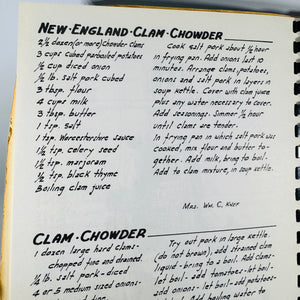 NEW·ENGLAND·CLAM·CHOWDER
2½ dozen (or more) chowder clams
3 cups cubed parboiled potatoes
½ cup diced onion
¼ lb. salt pork cubed
3 tbsp. flour
4 cups milk
3 tbsp. butter
1 tsp. salt
1 tsp. Worcestershire sauce
1½ tsp. celery seed
1½ tsp. marjoram
1½ tsp. black thyme
Boiling clam juice
Cook salt pork about ½ hour
in frying pan. Add onions last 10
minutes. Arrange clams, potatoes,
onions and salt pork in layers in
soup kettle. Cover with clam juice
plus any water necessary to cover.
Add seasonings. Simmer ½ hour
until clams are tender.
In frying pan in which salt pork was
cooked, mix flour and butter to-
gether. Add milk, bring to boil.
Add to clam mixture, in soup kettle.
MRS. WM. C. KURR
CLAM·CHOWDER
1 dozen large hard clams-
chopped fine and drained.
¼ lb. salt pork-diced
4 or 5 medium sized onions-
Try out pork in large kettle.
(do not brown), add strained clam
liquid - bring to a boil. Add onions-
let boil - add tomatoes - let boil -
and potatoes - let boil -
onions - let boil. Add